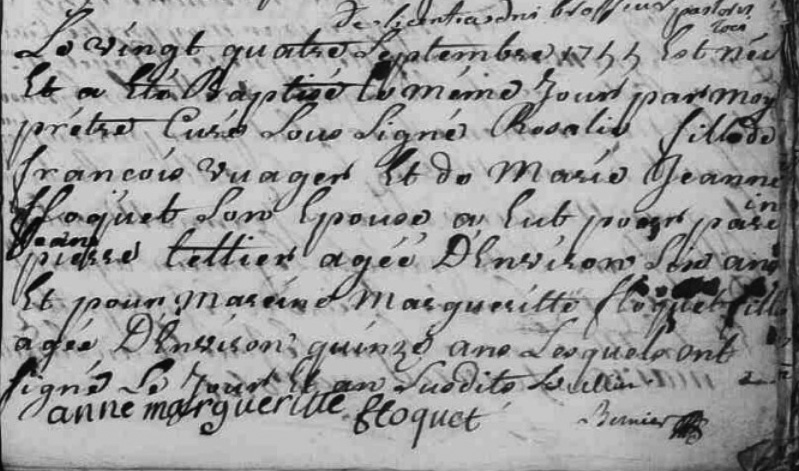 De licentia dni brasseur pastoris
loci
Le vingt quatre Septembre 1755 Est née
Et a Eté Baptisé le méme Jour par moy
prétre Curé Sous Signé Rosalie fille de
francois vuager Et de Marie Jeanne
floquet Son Epouse a Eut pour parein
Jean
pierre tellier agée D'Environ Six ans
Et pour Mareine Margueritte floquet fille
agée D'Environ quinze ans Lesquels ont
Signé Le Jour Et an Susdits
anne margueritte floquet
Bernier